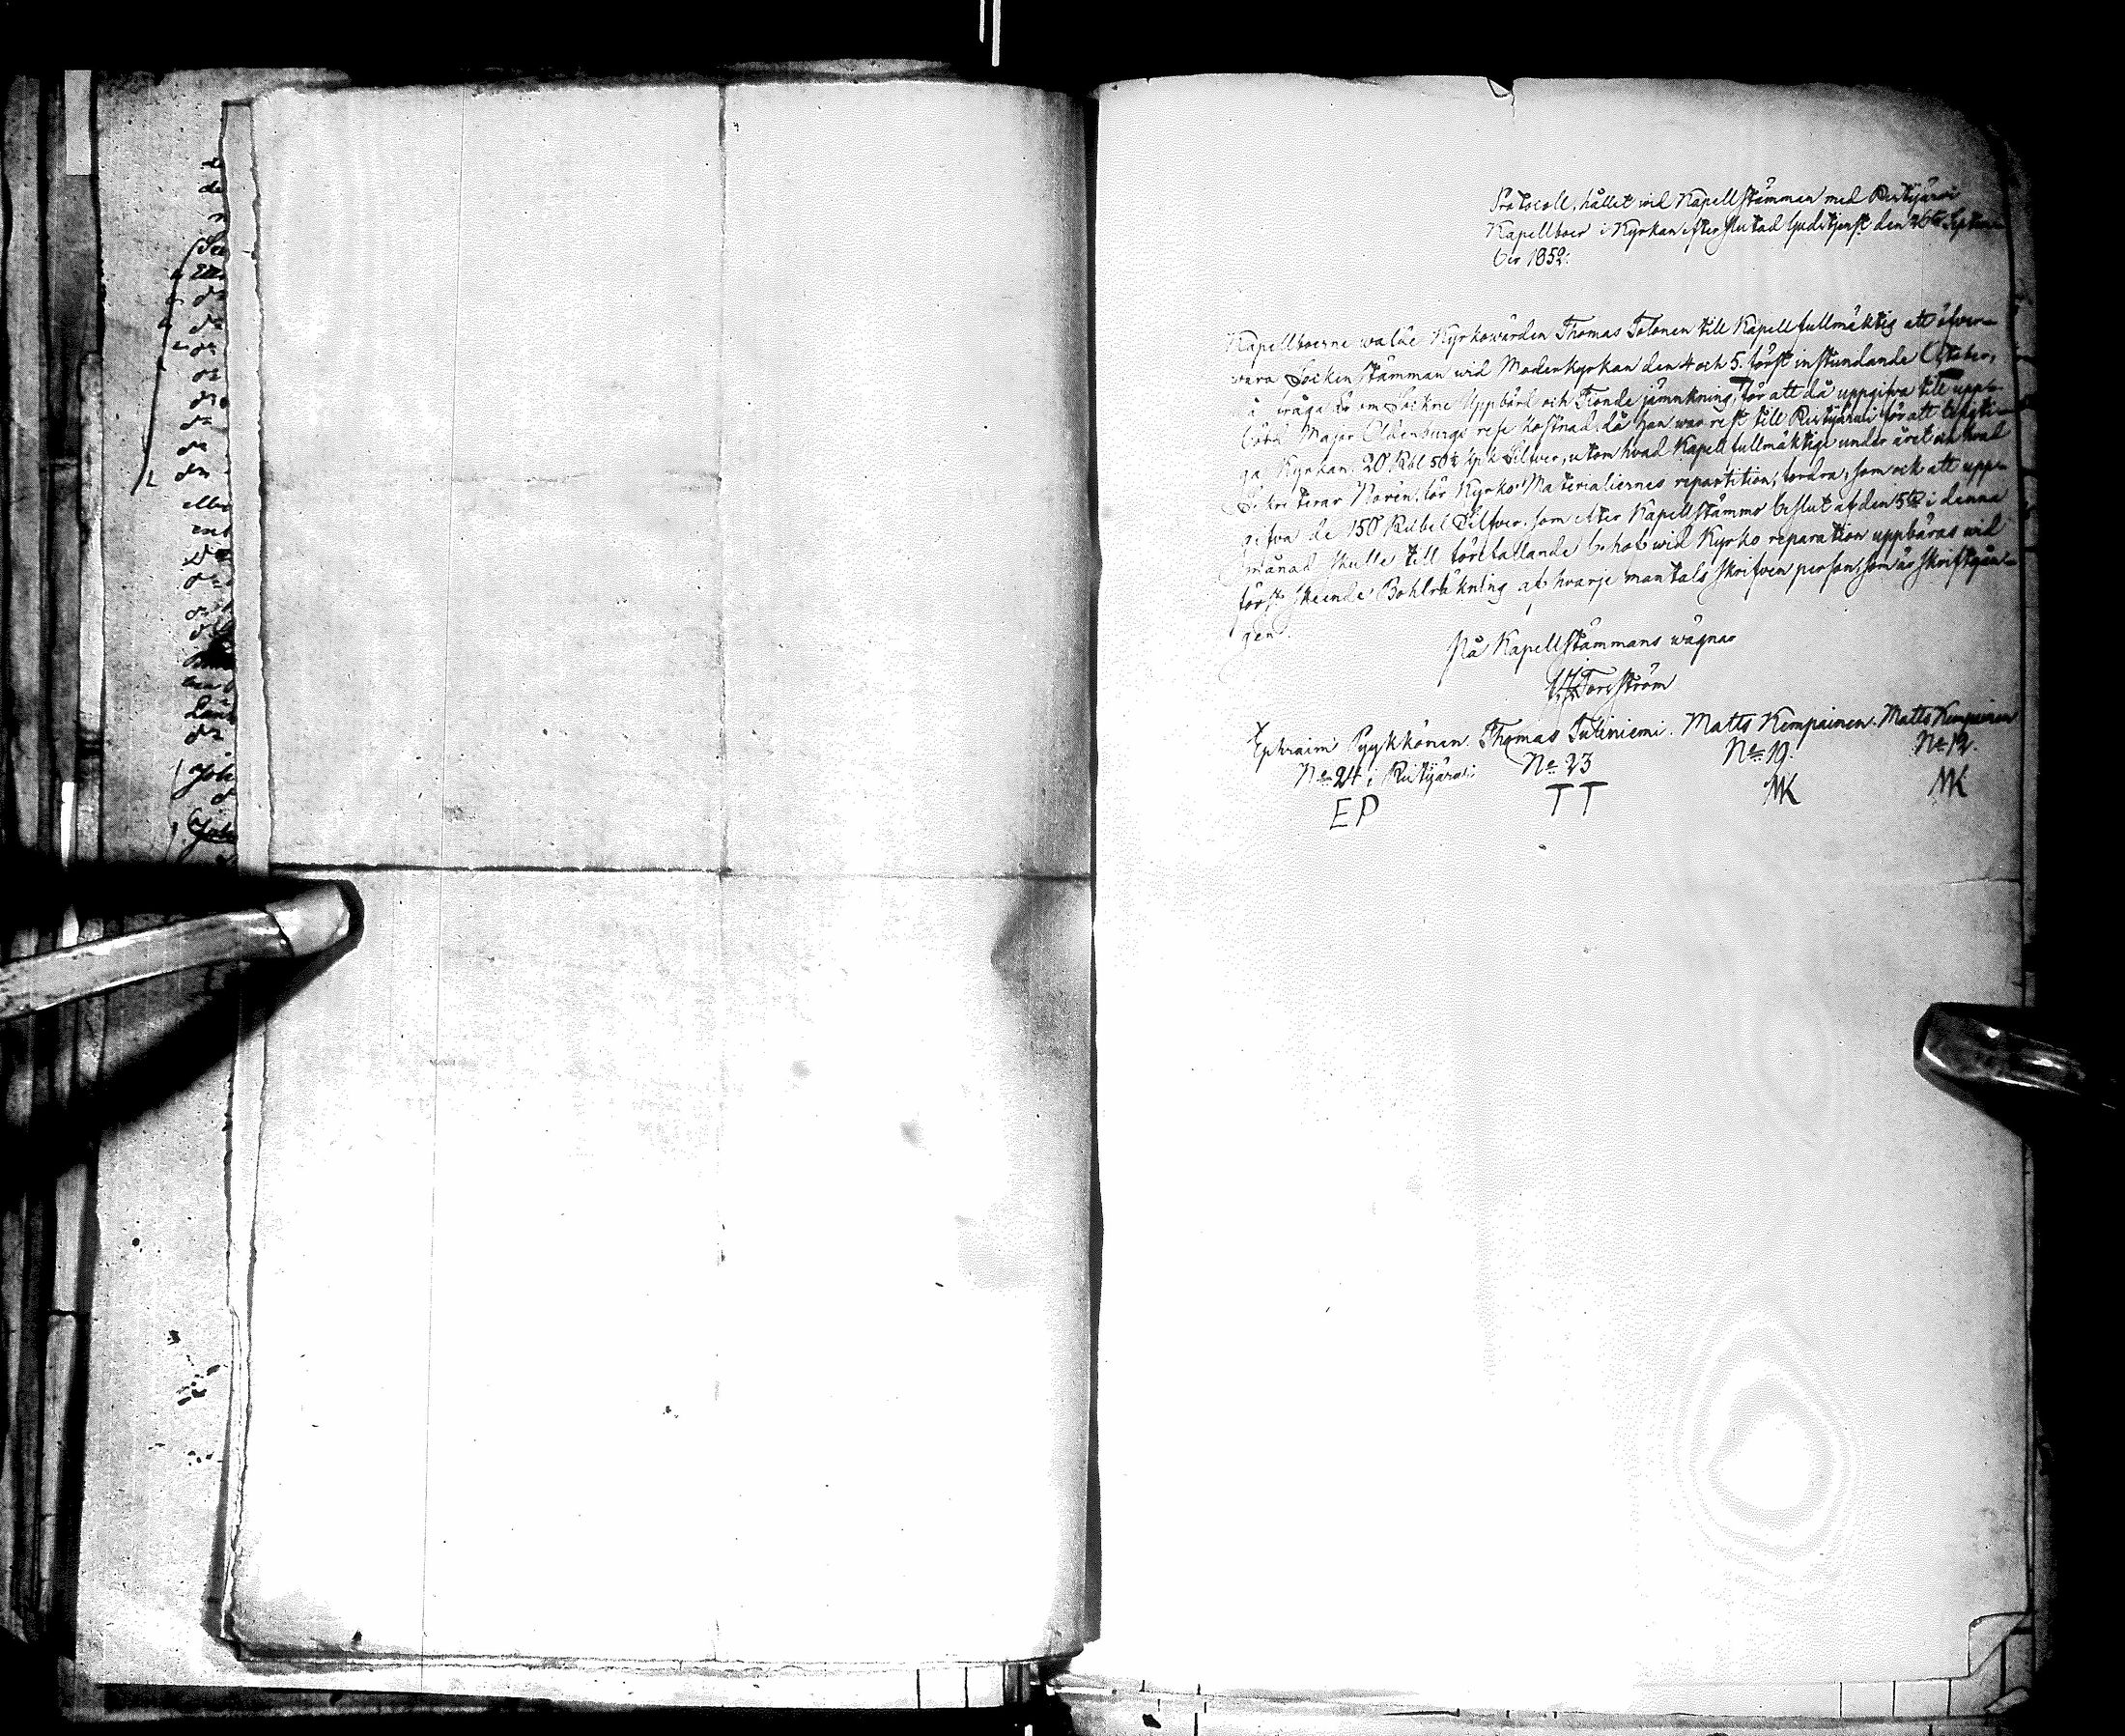 Protocoll, hållet wid Kapellstämman med Ristijärwi
Kapellboer i Kyrkan efter slutad Gudstjenst den 26te Septem
ber 1852.
Kapellboerne walde Kyrkowärden Thomas Tolonen till Kapellfullmäktig att öfver-
vara Sockenstämman wid Moderkyrkan den 4 och 5. först instundande October,
i fråga om Sockne Uppbörd och Tionde jämnkning, för att då uppgifva till upp-
börd Major Oldenburgs rese kostnad, då han war rest till Ristijärwi för att besigti-
ga Kyrkan, 20 Rbl 50½ kpk Silfver, utom hvad Kapellfullmäktige under året och hvad
Sekreterar Norén, för Kyrko Materialiernes repartition, fordra, som ock att upp-
gifva de 150 Rubel Silfver, som efter Kapellstämmo beslut af den 5te i denna
månad skulle till förefallande behof wid Kyrko reparation uppbäras wid
först skeende Bohlräkning af hvarje mantals skrifven person, som är skriftgån-
gen.
På Kapellstämmans wägnar
Torsström
Ephraim Pyykkönen. Thomas Tuliniemi. Matts Kempainen. Matts Kempainen
No 24 i Ristijärwi No 23 No 19. No 12.
EP TT MK MK
de
de
d
d
d
d
d
d
d
d
eller
d
d
d
d
Joh
d
Joh